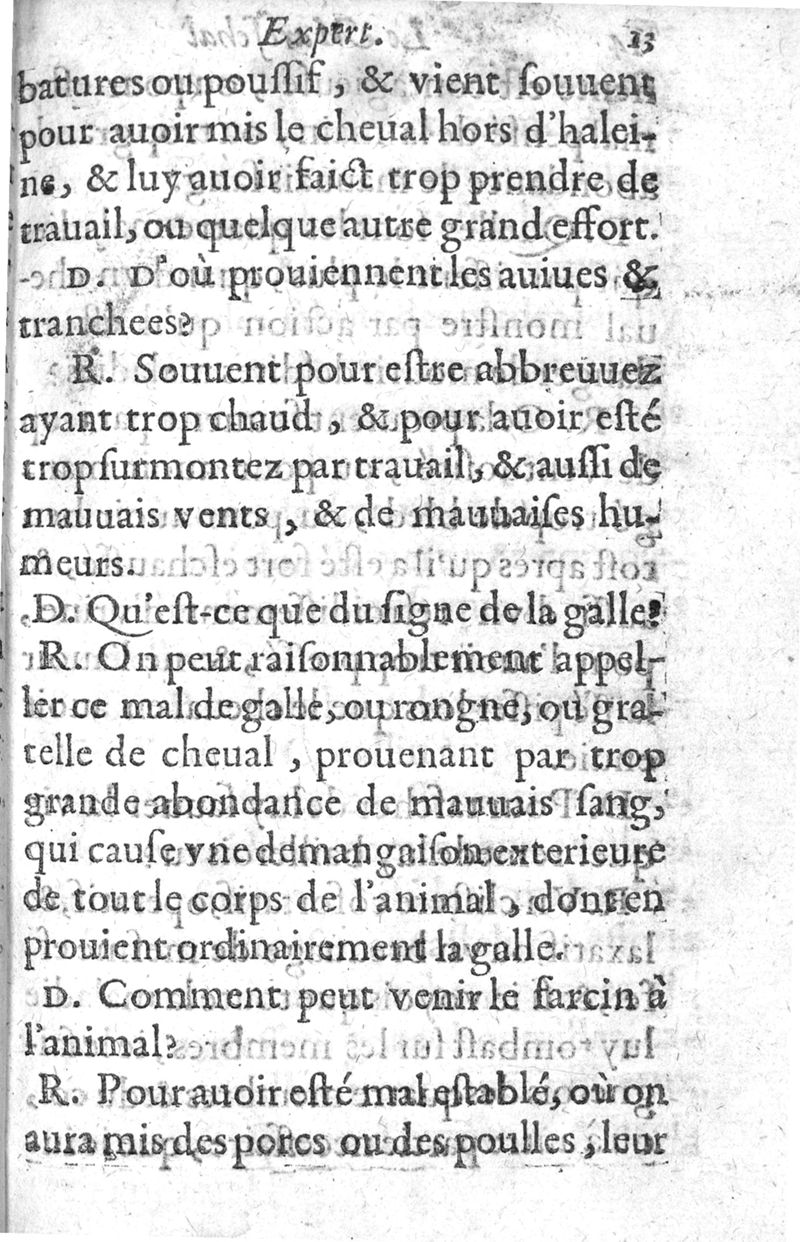 Expert. 13
batures ou poussif, & vient souuent
pour auoir mis le cheual hors d'halei-
ne, & luy auoir faict trop prendre de
trauail, ou quelque autre grand effort.
D. D'où prouiennent les auiues &
tranchees?
R. Souuent pour estre abbreuuez
ayant trop chaud, & pour auoir esté
trop surmontez par trauail, & aussi de
mauuais vents, & de mauuaises hu-
meurs.
D. Qu'est-ce que du signe de la galle?
R. On peut raisonnablement appel-
ler ce mal de galle, ou rongne, ou gra-
telle de cheual, prouenant par trop
grande abondance de mauuais sang,
qui cause vne demangaison exterieure
de tout le corps de l'animal, dont en
prouient ordinairement la galle.
D. Comment peut venir le farcin à
l'animal?
R. Pour auoir esté mal establé, où on
aura mis des porcs ou des poulles, leur